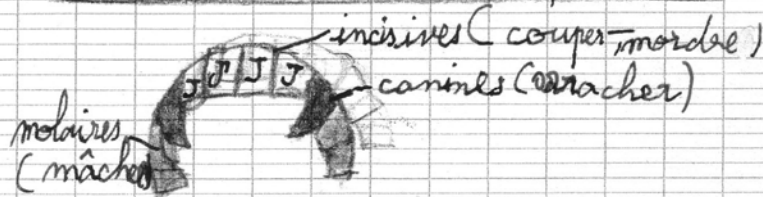 incisives ( couper, mordre )
J J J J
canines (arracher)
molaires
( mâcher)